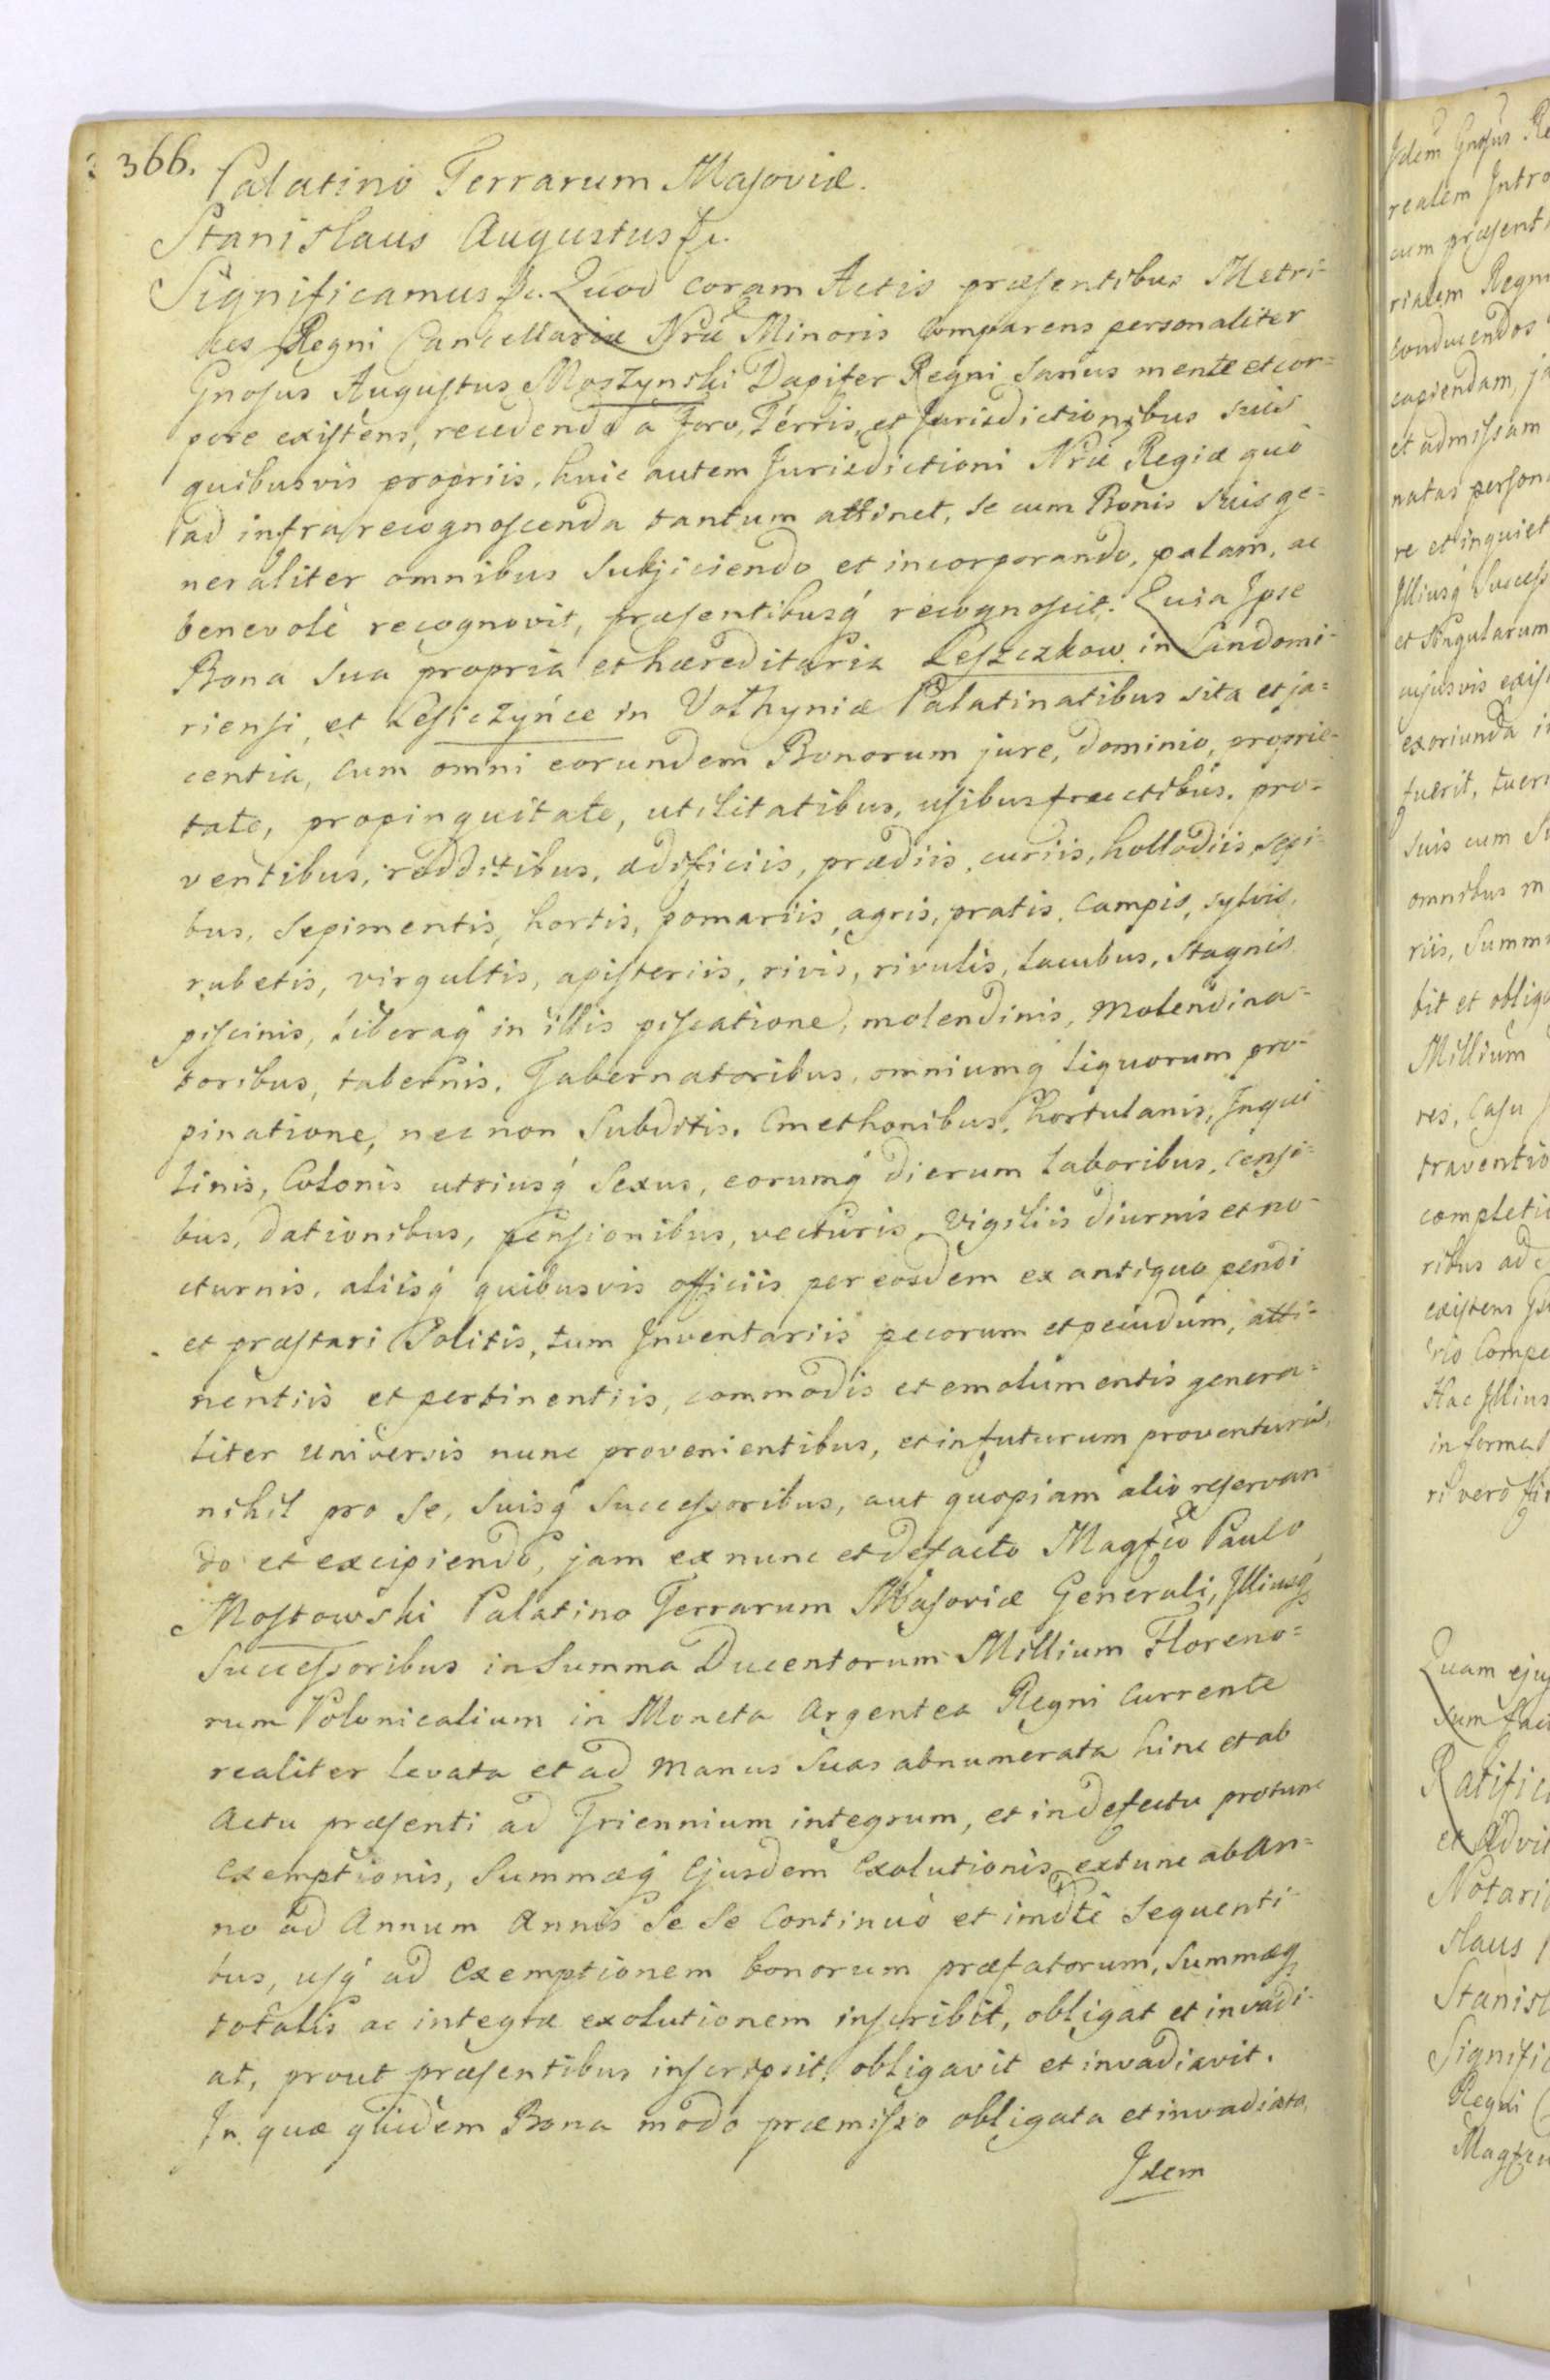 366.
Palatino Terrarum Masoviæ.
Stanislaus Augustus &c.
Significamus &c. Quod coram Actis præsentibus Metri=
ces Regni Cancellariæ Nræ Minoris Comparens personaliter
Gnosus Augustus Moszynski Dapifer Regni Sanus mente et cor=
pore existens, recedendo a Foro, Terris, et Jurisdictionibus suis
quibusvis propriis, huic autem Jurisdictioni Nræ Regiæ quò
ad infra recognoscenda tantum attinet, se cum Bonis suis ge=
neraliter omnibus Subjiciendo et incorporando, palam, ac
benevolè recognovit, præsentibusq́ recognoscit. Quia Ipse
Bona sua propria et hæreditaria Leszczkow in Sandomi=
riensi, et Lesiczyńce in Volhyniæ Palatinatibus sita et ja=
centia, cum omni eorundem Bonorum jure, dominio, proprie=
tate, propinquitate, utilitatibus, usibusfructibus, pro=
ventibus, redditibus, ædificiis, prædiis, curiis, hollodiis, sepi=
bus, Sepimentis, hortis, pomariis, agris, pratis, campis, sylvis,
rubetis, virgultis, apisteriis, rivis, rivulis, lacubus, stagnis
piscinis, liberaq́ in illis piscatione, molendinis, Molendina=
toribus, tabernis, Tabernatoribus, omniumq́ liquorum pro=
pinatione, nec non Subditis, Cmethonibus, hortulanis, Inqui=
linis, Colonis utriusq́ Sexus, eorumq́ dierum laboribus, censi=
bus, dationibus, pensionibus, vecturis, Vigiliis diurnis et no=
cturnis, aliisq́ quibusvis officiis per eosdem ex antiquo pendi
et præstari Solitis, tum Inventariis pecorum et pecudum, atti=
nentiis et pertinentiis, commodis et emolumentis genera=
liter universis nunc provenientibus, et in futurum proventuris,
nihil pro se, suisq́ Successoribus, aut quopiam alio reservan=
do et excipiendo, jam ex nunc et defacto Magfco Paulo
Mostowski Palatino Terrarum Masoviæ Generali, Illiusq́
Successoribus in Summa Ducentorum Millium Floreno=
rum Polonicalium in Moneta Argentea Regni Currente
realiter levata et ad Manus Suas abnumerata hinc et ab
Actu præsenti ad Triennium integrum, et in defectu protunc
Exemptionis, Summæq́ Ejusdem Exolutionis extunc ab An=
no ad Annum Annis Se Se Continuò et imdtè sequenti=
bus, usq́ ad Exemptionem bonorum præfatorum, Summæq́
totalis ac integræ exolutionem inscribit, obligat et invadi=
at, prout præsentibus inscripsit, obligavit et invadiavit.
In quæ quidem Bona modo præmisso obligata et invadiata,
Idem
Idem Gnosus
realem Intro
cum præsent
rialem Regni
conducendos
capiendam, ja
et admissam
natas person
re et inquiet
Illiusq́ Success
et Singularum
cujusvis exis
exoriunda in
fuerit, tueri
suis cum
omnibus
riis, Summ
bit et obliga
Millium
res, Casu
traventio
completi
ribus ad
existens
rio Compe
Hac Illius
in forma
ri verò
Quam ejus
sum fac
Ratific
et Advi
Notari
slaus
Stanisl
Signific
Regni
Magfcu